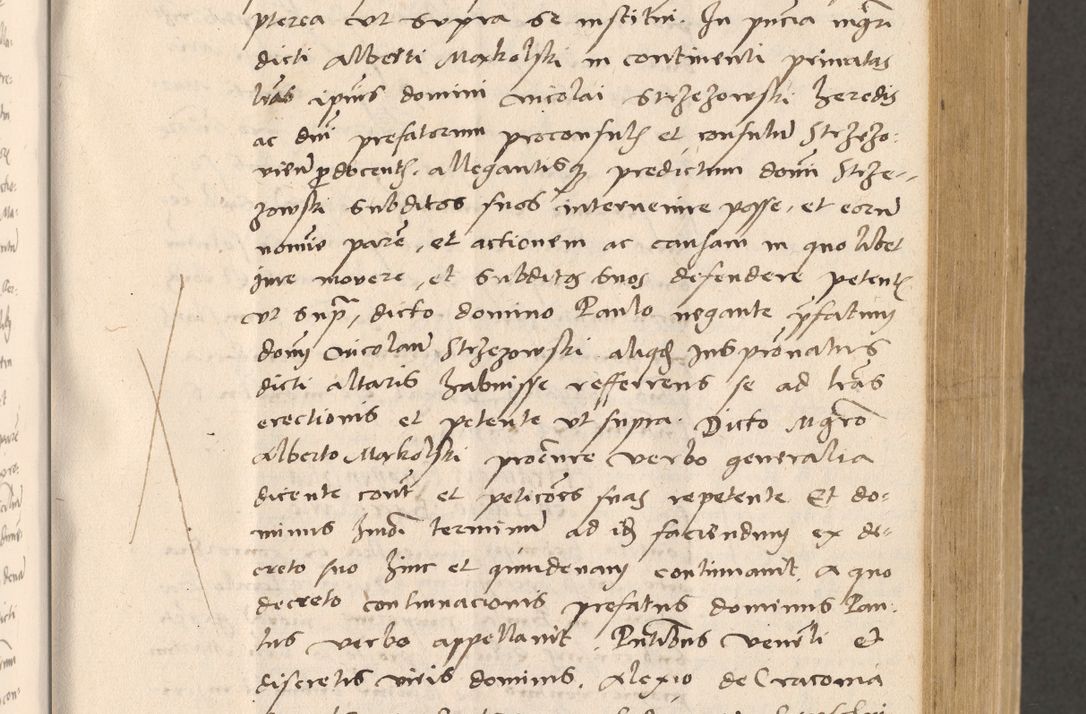 pterea vt supra se institui. In pncia mgri
dicti Alberti Maxkolski in continenti privatas
lras ipius domini Nicolai Strzezowski heredis
ac dni prefatorum proconsulis et consulum Strzezo:
vien p docentis. allegantisq predictum domi Strze-
zowski subditos suos intervenire posse, et eorum
nomie parere, et actionem ac causam in quo libet
iure movere, et subditos suos defendere petentis
vt supra, dicto domino Paulo negante pfatum
domi Nicolaum Strzezowski aliqd Jus pronatus
dicti altaris habuisse refferrens se ad lras
erectionis et petente vt supra. Dicto Mgro
Alberto Maxkolski procure verbo generalia
dicente cont et peticoes suas repetente Et do:
minus Jmdi terminum ad id faciendum ex de:
creto suo hinc et quindenam continuavit. A quo
decreto continuacionis prefatus dominus Pau:
lus verbo appellavit. Pntibus venerli Et
discretis viris dominis, Alexio de Cracovia